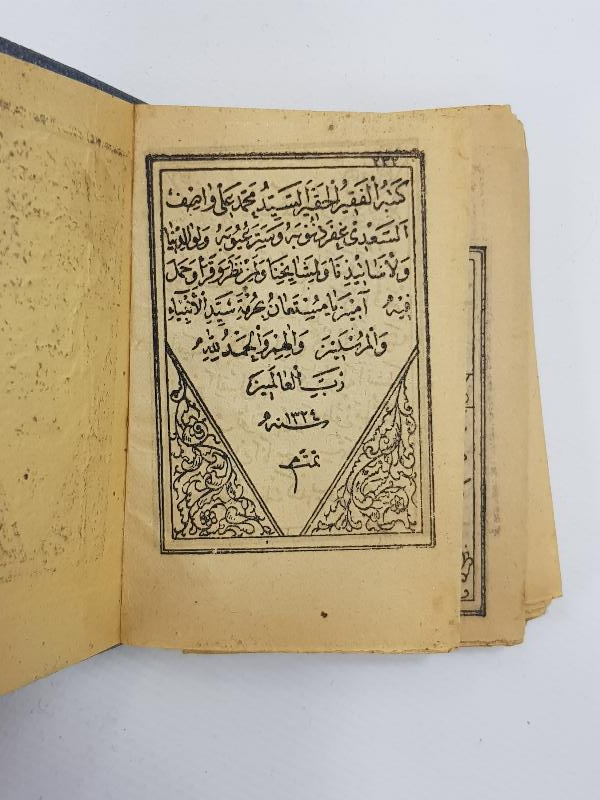 ٢٣٢
كتبه الفقير الحقير السيد محمد علي واصف
السعدي غفر ذنوبه وستر عيوبه ولوالدينا
ولأساتيذنا ولمشايخنا ولمن نظر وقرأ وحمل
فيه آمين يا مستعان بحرمة سيد الأنبياء
والمرسلين والهم والحمد لله
رب العالمين
سنه ١٣٢٤
تمت م